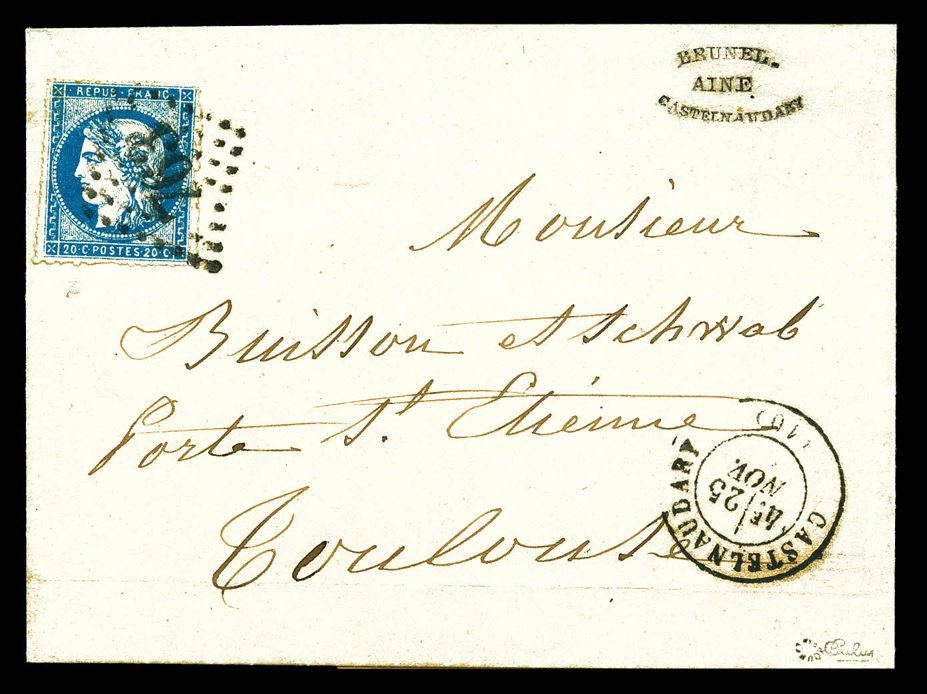 BRUNEL
AINÉ
CASTELNAUDARY
REPUB · FRANC
20 · C · POSTES · 20 · C
Monsieur
Buisson et Schwab
Porte St. Etienne
Toulouse
CASTELNAUDARY (10)
4E
25
NOV.